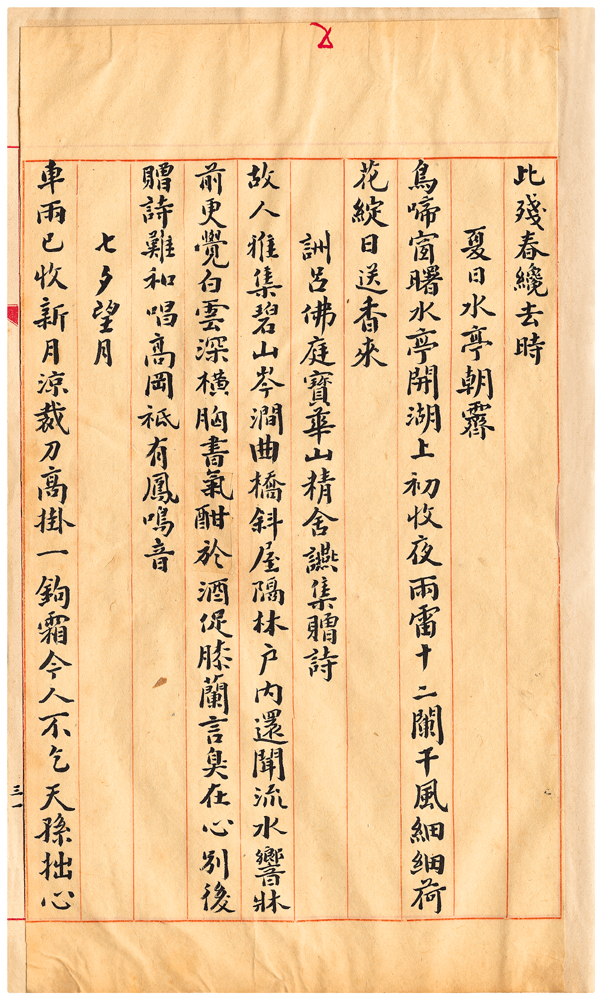 比殘春纔去時
夏日水亭朝霽
鳥啼窗曙水亭開湖上初收夜雨雷十二闌干風細細荷
花綻日送香來
詶呂佛庭寶華山精舍讌集贈詩
故人雅集碧山岑澗曲橋斜屋隔林户內還聞流水響牀
前更覺白雲深橫胸書氣酣於酒促膝蘭言臭在心別後
贈詩難和唱高岡祗有鳳鳴音
七夕望月
車雨已收新月涼裁刀高掛一鉤霜今人不乞天孫拙心
三一